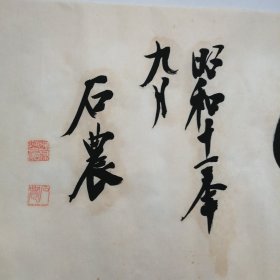 昭和十一年
九月
石農